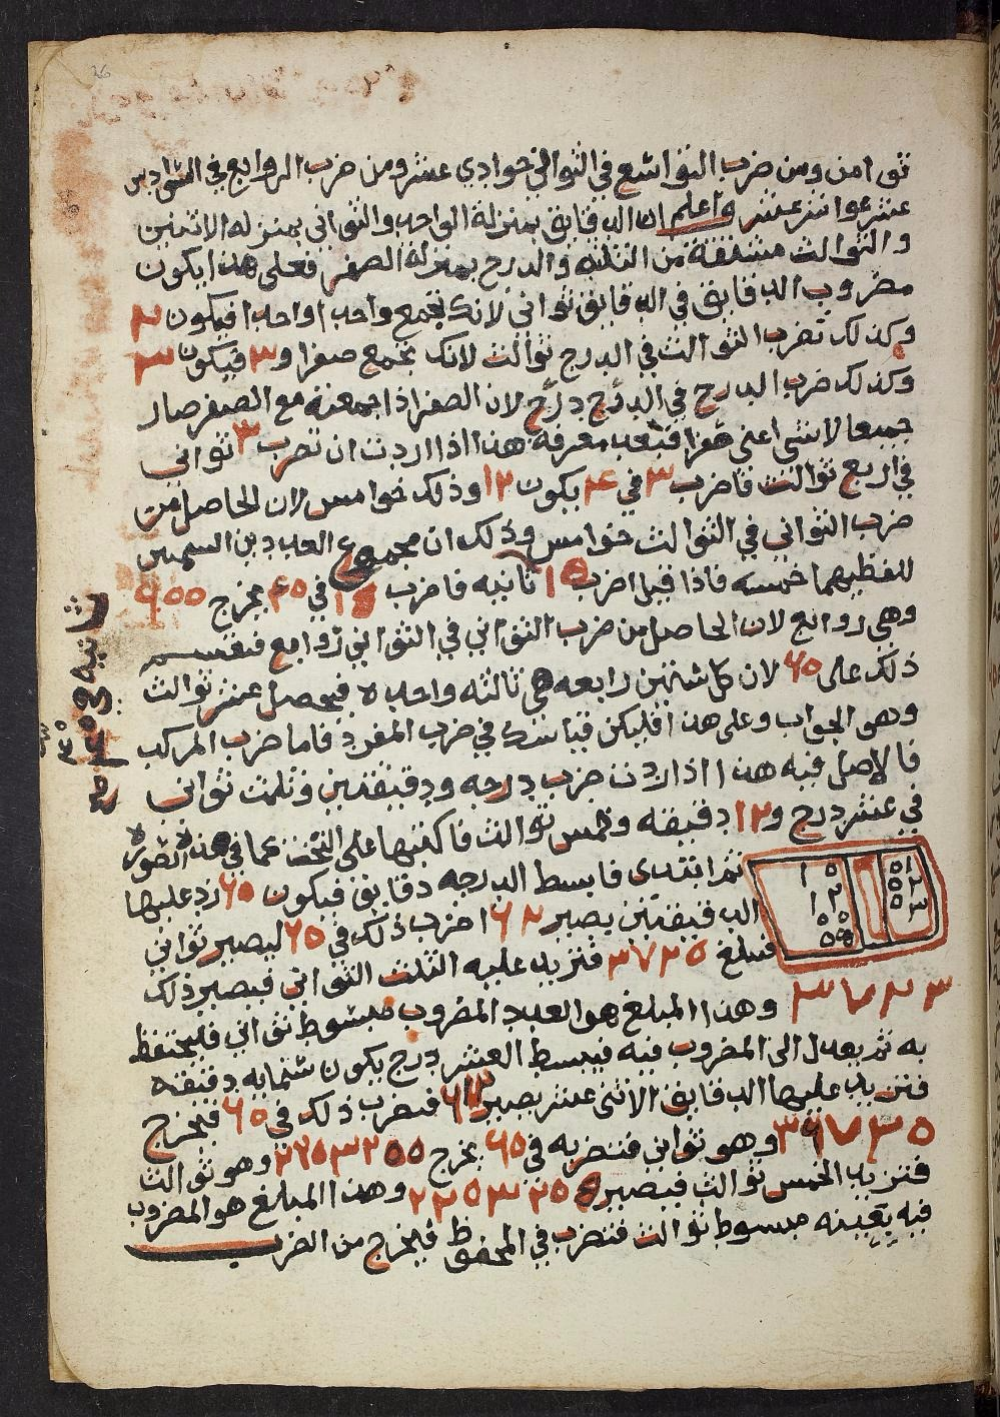 ثوامن ومن ضرب التواسع في الثواني حوادي عشر ومن ضرب الروابع في السوادس
عشر عواشر عشر واعلم ان الدقايق بمنزلة الواحد والثواني بمنزله الاثنين
والثوالث مشتقة من الثلثه والدرج بمنزلة الصفر فعلى هذا يكون
مضروب الدقايق في الدقايق ثواني لانك تجمع واحدا وواحدا فيكون ٢
وكذلك تضرب الثوالث في الدرج ثوالث لانك تجمع صفرا و٣ فيكون ٣
وكذلك ضرب الدرج في الدرج درج لان الصفر اذا جمعته مع الصفر صار
جميعا لاشي اعني صفرا فبعد معرفة هذا اذا اردت ان تضرب ٣ ثواني
في اربع ثوالث فاضرب ٣ في ۴ يكون ١٢ وذلك خوامس لان الحاصل من
ضرب الثواني في الثوالث خوامس وذلك ان مجموع العددين السميين
للفظيهما خمسه فاذا قيل اضرب ١٥ ثانيه فاضرب ١٥ في ۴٥ يخرج ۶٥٥
وهي روابع لان الحاصل من ضرب الثواني في الثواني روابع فتقسم
ذلك على ۶٥ لان كل ستين رابعه هي ثالثه واحده فيحصل عشر ثوالث
وهو الجواب وعلى هذا فليكن قياسك في ضرب المفرد فاما ضرب المركب
فالاصل فيه هذا اذا اردت ضرب درجه ودقيقتين وثلث ثواني
في عشر درج و١٢ دقيقه وخمس ثوالث فاكتبها على التخت كما في هذه الصوره
ثم ابتدي فابسط الدرجه دقايق فيكون ۶٥ زد عليها
الدقيقتين يصير ۶٢ اضرب ذلك في ۶٥ ليصير ثواني
فتبلغ ٣٧٢٥ فتزيد عليه الثلث الثواني فيصير ذلك
٣٧٢٣ وهذا المبلغ هو العدد المضروب مبسوط ثواني فليحتفظ
به ثم يعدل الى المضروب فيه فيبسط العشر درج يكون ستمايه دقيقه
فتزيد عليها الدقايق الاثني عشر يصير ۶١٢ فيضرب ذلك في ۶٥ فيخرج
٣۶٧٢٥ وهو ثواني فتضربه في ۶٥ يخرج ٢٢٥٣٢٥٥ وهو ثوالث
فتزيد الخمس ثوالث فيصير ٢٢٥٣٢٥۵ وهذا المبلغ هو المضروب
فيه بعينه مبسوط ثوالث فتضرب في المحفوظ فيخرج من الضرب